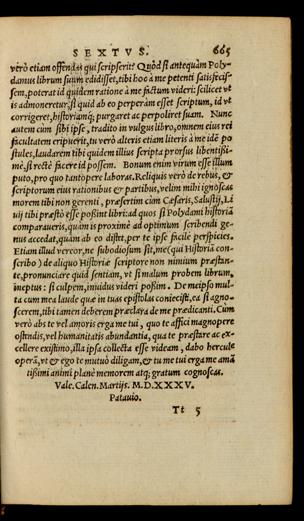 SEXTVS. 665
verò etiam offendas qui scripserit? Quòd si antequàm Poly-
damus librum suum edidisset, tibi hoc à me petenti satisfecis-
sem, poterat id quidem ratione à me factum videri: scilicet vt
is admoneretur, si quid ab eo perperàm esset scriptum, id vt
corrigeret, historiamq; purgaret ac perpoliret suam. Nunc
autem cùm sibi ipse, tradito in vulgus libro, omnem eius rei
facultatem eripuerit, tu verò alteris etiam literis à me idē po
stules, laudarem tibi quidem illius scripta prorsus libentißi-
mè, si rectè facere id possem. Bonum enim virum esse illum
puto, pro quo tantopere labores. Reliquis verò de rebus, &
scriptorum eius rationibus & partibus, velim mihi ignoscas
morem tibi non gerenti, præsertim cùm Cæsaris, Salustij, Li
uij tibi præstò esse poßint libri: ad quos si Polydami historiā
comparaueris, quàm is proximè ad optimum scribendi ge-
nus accedat, quàm ab eo distet, per te ipse facilè perspicies.
Etiam illud vereor, ne subodiosum sit, me (qui Historiā con-
scribo) de aliquo Historiæ scriptore non nimium præstan-
te, pronunciare quid sentiam, vt si malum probem librum,
ineptus: si culpem, inuidus videri poßim. De meipso mul-
ta cum mea laude quæ in tuas epistolas coniecisti, ea si agno-
scerem, tibi tamen deberem præclara de me prædicanti. Cum
verò abs te vel amoris erga me tui, quo te affici magnopere
ostendis, vel humanitatis abundantia, qua te præstare ac ex-
cellere existimo, illa ipsa collecta esse videam, dabo hercule
operā, vt & ego te mutuò diligam, & tu me tui erga me amā
tißimi animi planè memorem atq; gratum cognoscas.
Vale. Calen. Martijs. M. D. XXXV.
Patauio.
Tt 5